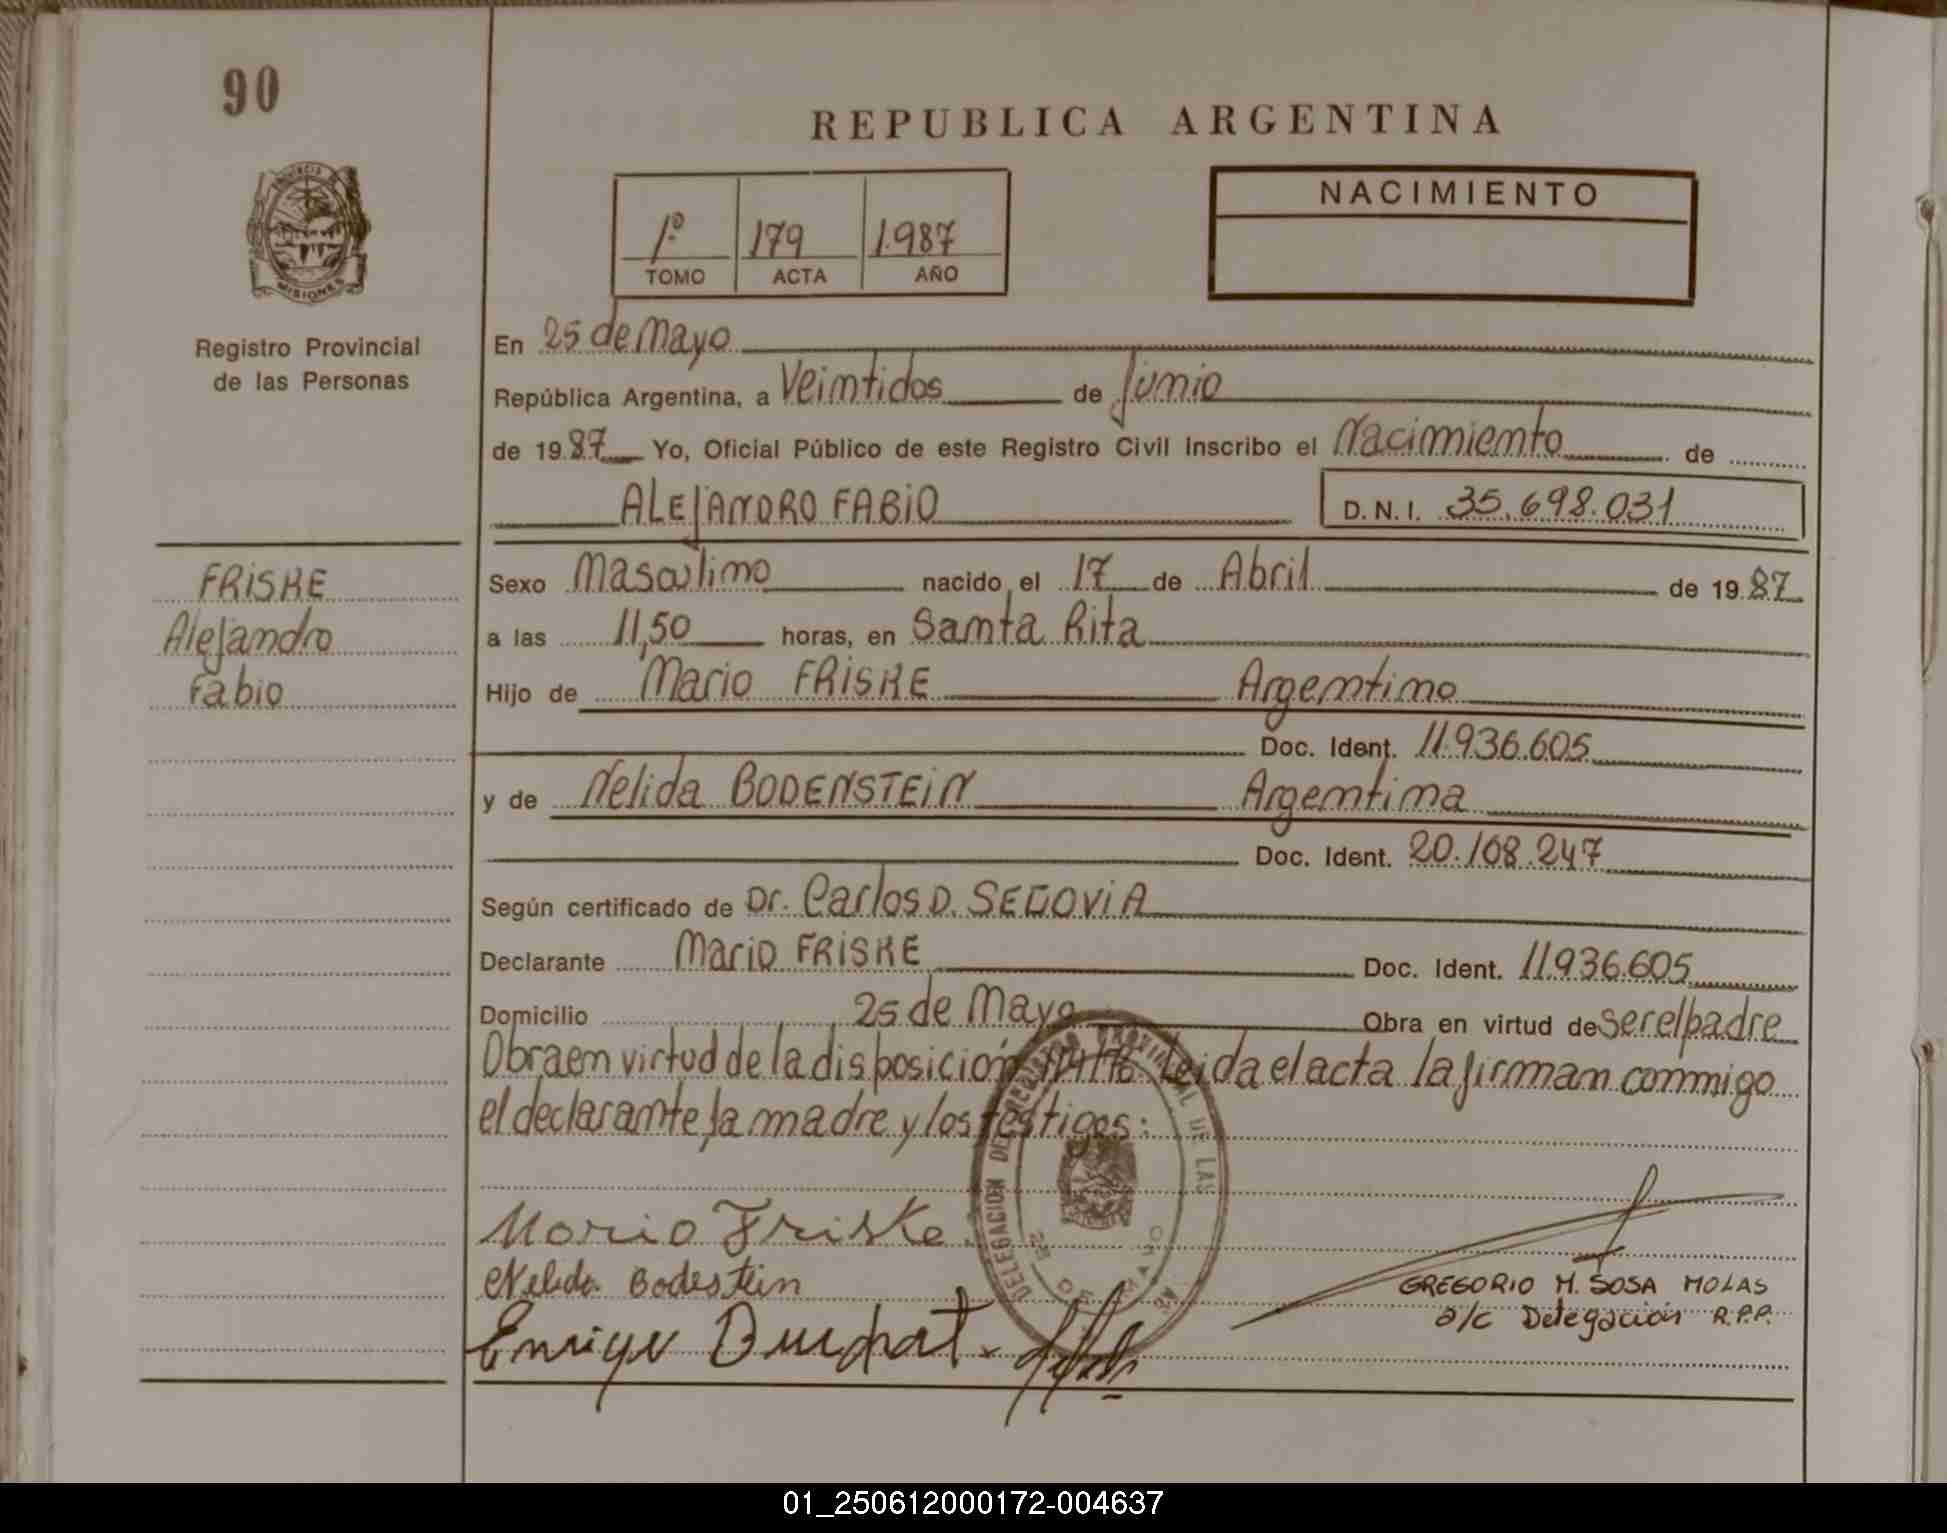 90
REPUBLICA ARGENTINA
NACIMIENTO
1º 179 1.987
TOMO ACTA AÑO
MISIONES
Registro Provincial
de las Personas
En 25 de Mayo
República Argentina, a Veintidos de Junio
de 1987 Yo, Oficial Público de este Registro Civil inscribo el Nacimiento de
ALEJANDRO FABIO D.N.I. 35.698.031
FRISKE
Alejandro
Fabio
Sexo Masculino nacido el 17 de Abril de 1987
a las 11,50 horas, en Santa Rita
Hijo de Mario FRISKE Argentino
Doc. Ident. 11.936.605
y de Nelida BODENSTEIN Argentina
Doc. Ident. 20.168.247
Según certificado de Dr. Carlos D. SEGOVIA
Declarante Mario FRISKE Doc. Ident. 11.936.605
Domicilio 25 de Mayo Obra en virtud de ser el padre
Obra en virtud de la disposición Leida el acta la firman conmigo
el declarante, la madre y los testigos:
DELEGACION DEL REGISTRO PROVINCIAL DE LAS
25 DE MAYO
Mario Friske
Nelida Bodestein
GREGORIO M. SOSA MOLAS
a/c Delegación R.P.P.
01_250612000172-004637